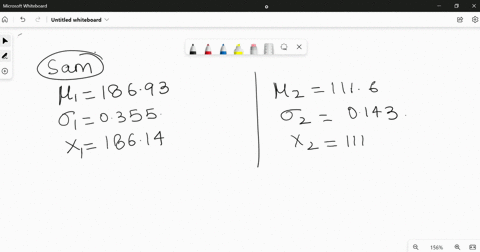 Microsoft Whiteboard
Untitled whiteboard
Sam
μ1 = 186.93
σ1 = 0.355.
X1 = 186.14
μ2 = 111.6
σ2 = 0.143.
X2 = 111
156%